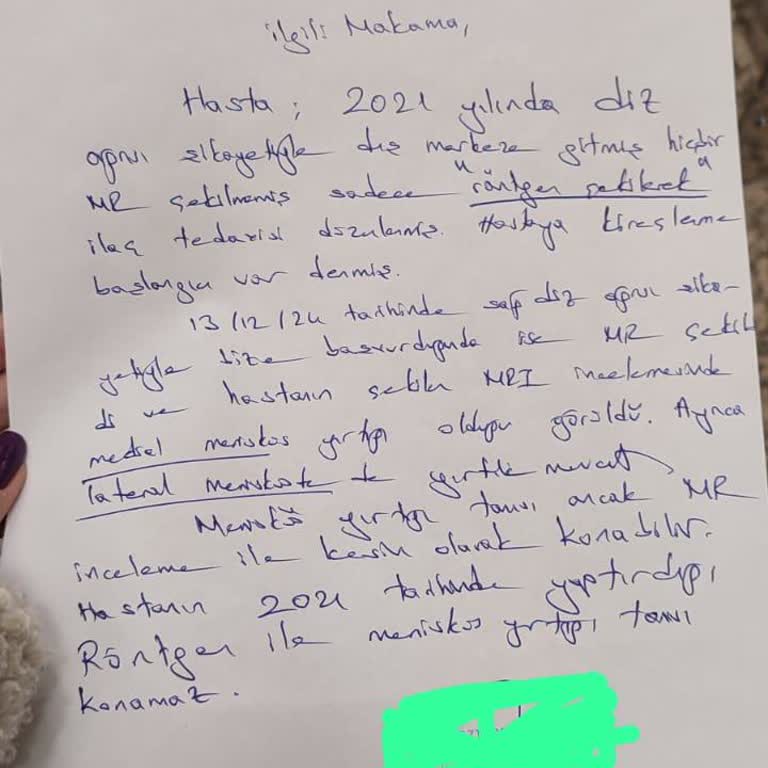 ilgili Makama,
Hasta; 2021 yılında diz
ağrısı şikayetiyle dış merkeze gitmiş hiçbir
MR çekilmemiş sadece "röntgen çekilerek"
ilaç tedavisi düzenlenmiş. Hastaya kireçlenme
başlangıcı var denmiş.
13/12/24 tarihinde sağ diz ağrısı şika-
yetiyle bize başvurduğunda ise MR çekil
di ve hastanın çekilen MRI incelemesinde
medial meniskos yırtığı olduğu görüldü. Ayrıca
lateral meniskste de yırtık mevcut
Menisküs yırtığı tanısı ancak MR
inceleme ile kesin olarak konabilir.
Hastanın 2021 tarihinde yaptırdığı
Röntgen ile meniskos yırtığı tanısı
konamaz.